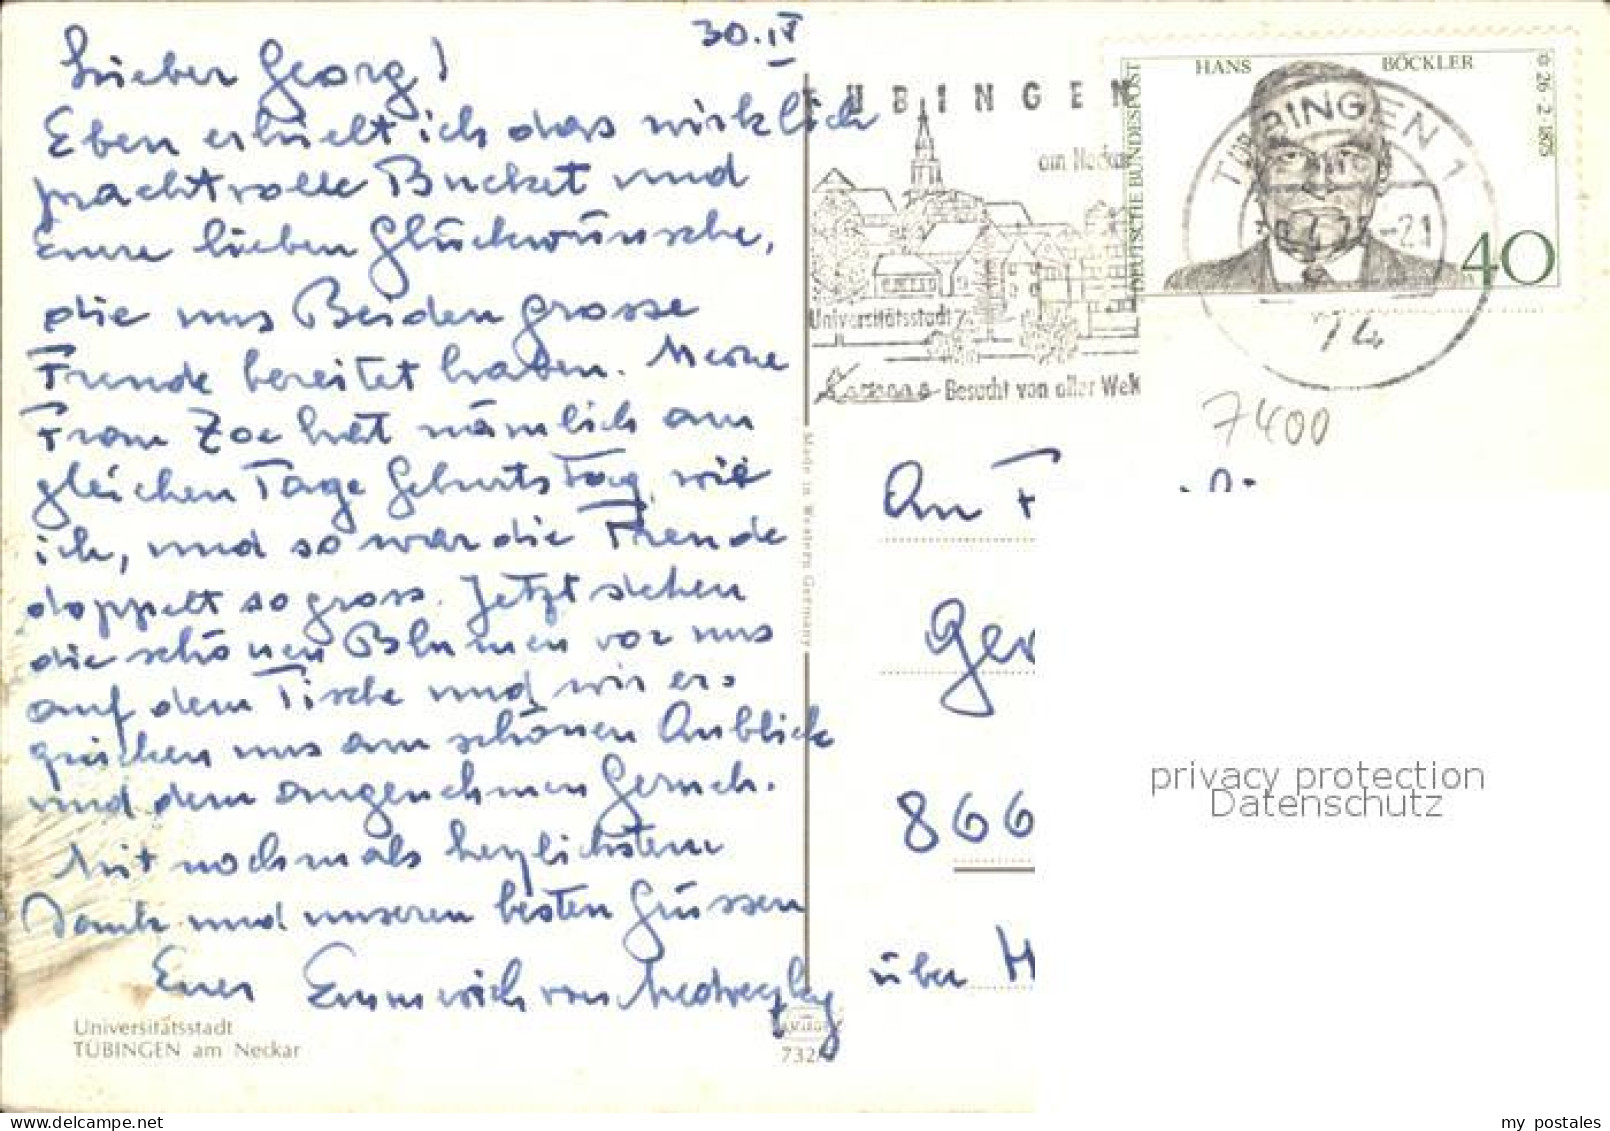 30.IV
Lieber Georg!
Eben erhielt ich das wirklich
prachtvolle Bucket und
Eure lieben Glückwünsche,
die uns Beiden grosse
Freude bereitet haben. Meine
Frau Zoe hat nämlich am
gleichen Tage Geburtstag, wie
ich, und so war die Freude
doppelt so gross. Jetzt stehen
die schönen Blumen vor uns
auf dem Tische und wir er-
quicken uns am schönen Anblick
und dem angenehmen Geruch.
Mit nochmals herzlichstem
Dank und unseren besten Grüssen
Euer Emmerich von
Universitätsstadt
TÜBINGEN am Neckar
732/
Made in Western Germany
TÜBINGEN
am Neckar
Universitätsstadt
Besucht von aller Welt
HANS BÖCKLER
© 26·2·1875
DEUTSCHE BUNDESPOST
40
TÜBINGEN 1
-21
74
7400
An F
Ger
866
über H
privacy protection
Datenschutz
my postales